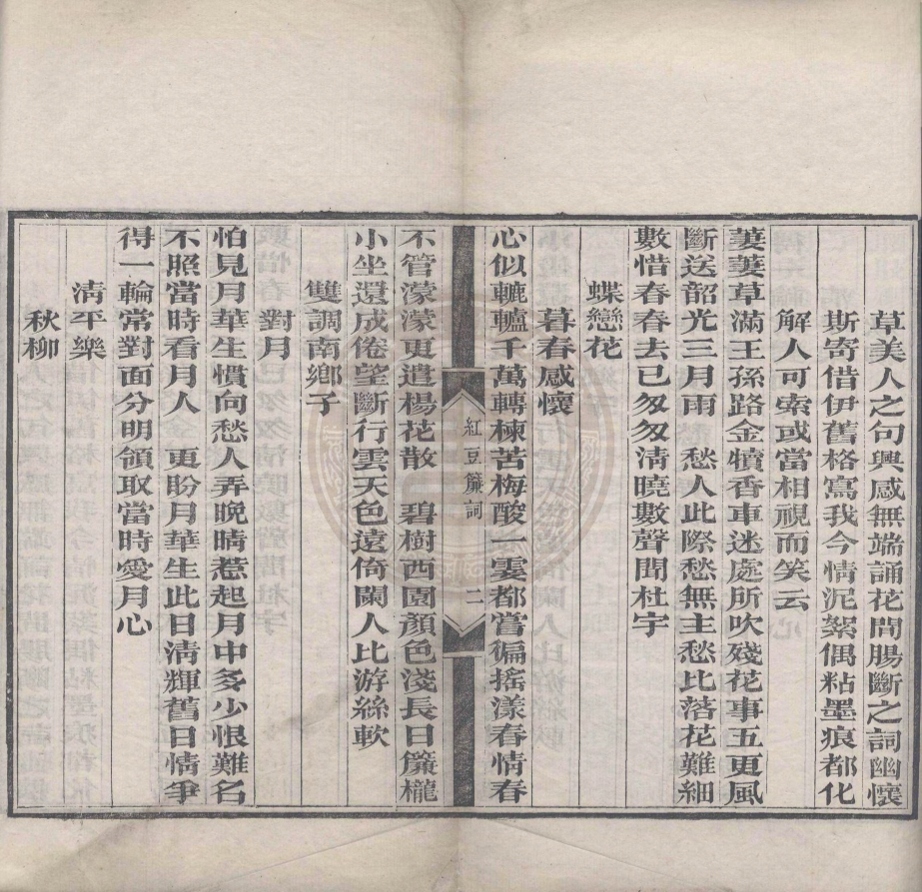 草美人之句興感無端誦花間腸斷之詞幽懷
斯寄借伊舊格寫我今情泥絮偶粘墨痕都化
解人可索或當相視而笑云
萋萋草滿王孫路金犢香車迷處所吹殘花事五更風
斷送韶光三月雨　愁人此際愁無主愁比落花難細
數惜春春去已匆匆淸曉數聲聞杜宇
蝶戀花
暮春感懷
心似轆轤千萬轉楝苦梅酸一霎都嘗徧搖漾春情春
紅豆簾詞　二
不管濛濛更遣楊花散　碧樹西園顏色淺長日簾櫳
小坐還成倦望斷行雲天色遠倚闌人比游絲軟
雙調南鄉子
對月
怕見月華生慣向愁人弄晚晴惹起月中多少恨難名
不照當時看月人　更盼月華生此日淸輝舊日情爭
得一輪常對面分明領取當時愛月心
淸平樂
秋柳